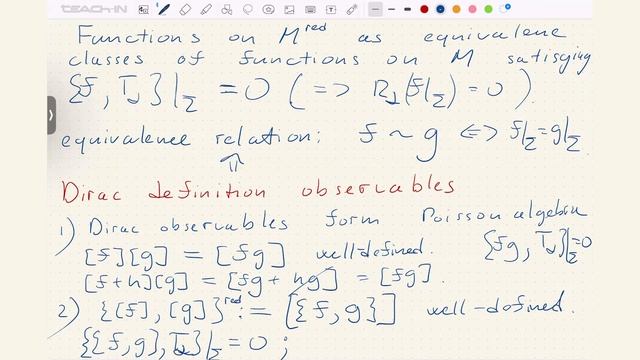 TEACH-IN
Functions on M^red as equivalence
classes of functions on M satisfying
{f, T_J}|_Σ = 0 (=> R_J(f|_Σ) = 0).
equivalence relation: f ~ g <=> f|_Σ = g|_Σ.
Dirac definition observables
1) Dirac observables form Poisson algebra
[f][g] = [fg] well-defined. {fg, T_J}|_Σ = 0
[f+h][g] = [fg + hg] = [fg].
2) {[f], [g]}^red := [{f, g}] well-defined.
{{f, g}, T_J}|_Σ = 0 ;